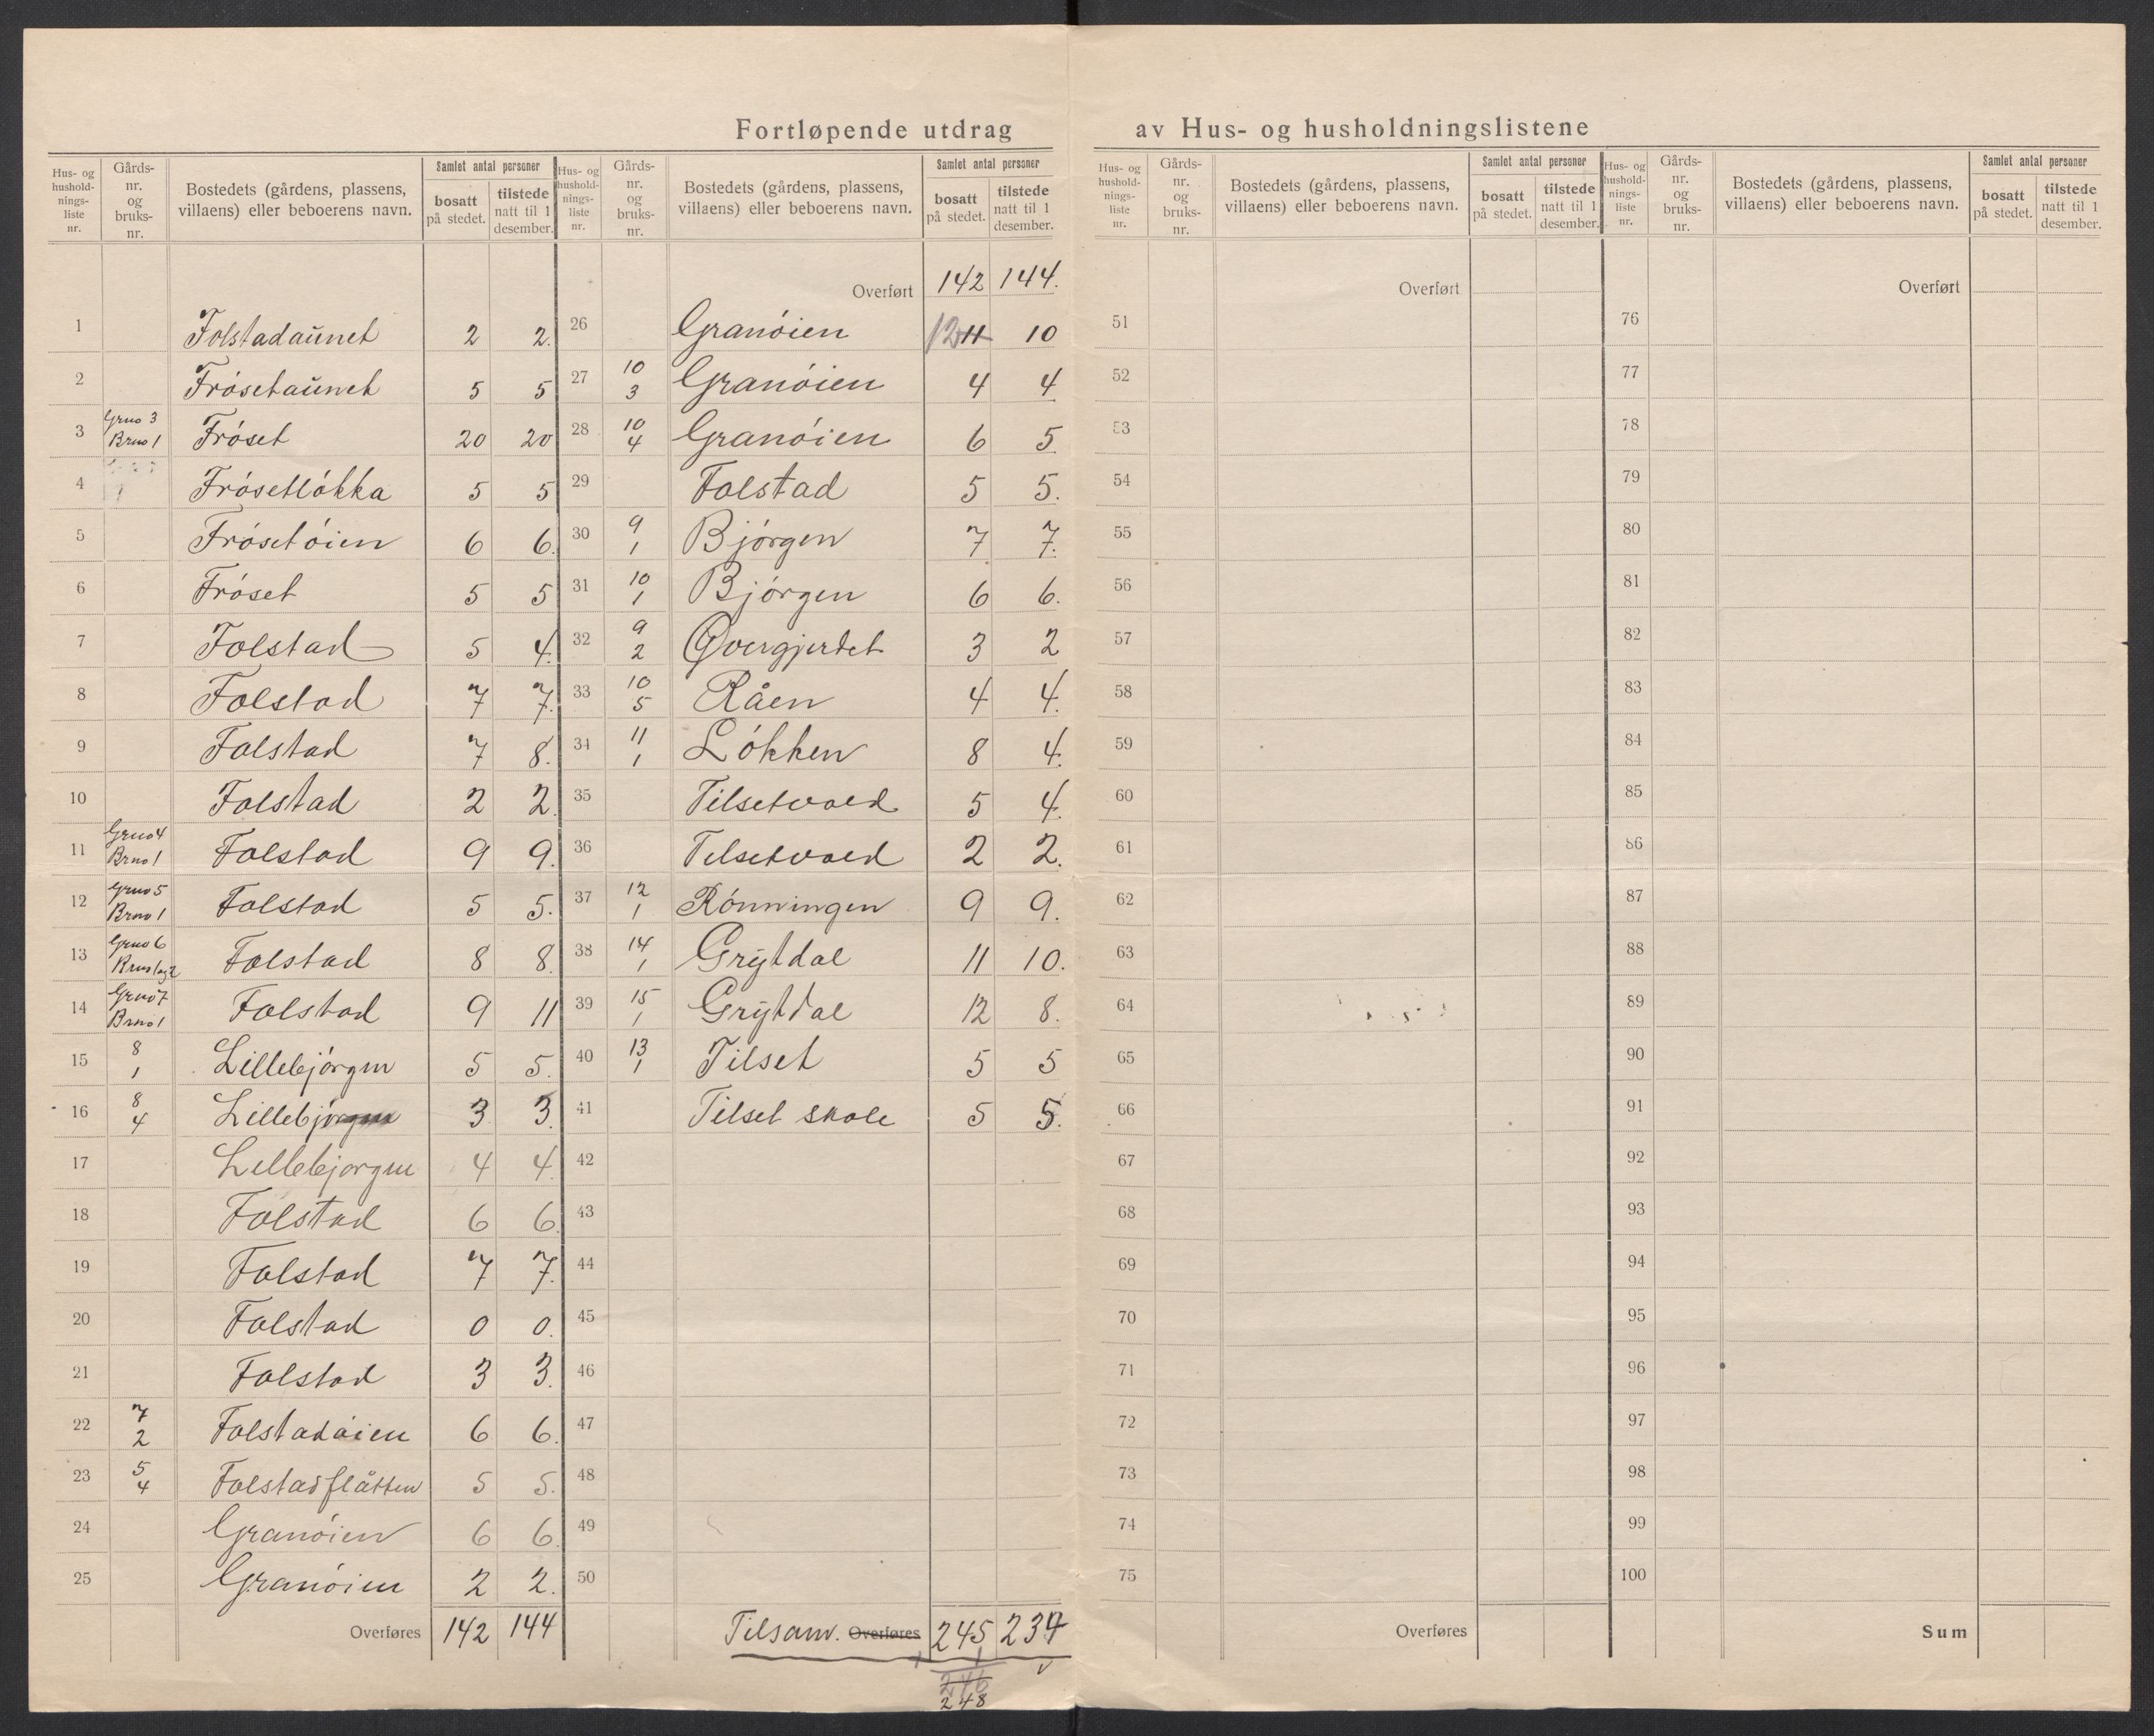 Fortløpende utdrag av Hus- og husholdningslistene
Hus- og hushold-nings-liste nr. Gårds-nr. og bruks-nr. Bostedets (gårdens, plassens, villaens) eller beboerens navn. Samlet antal personer bosatt på stedet. tilstede natt til 1 desember.
1 Folstadaunet 2 2.
2 Frösetaunet 5 5
3 Grno 3 Brno 1 Fröset 20 20
4 Frösetlökka 5 5
5 Frösetöien 6 6.
6 Fröset 5 5
7 Folstad 5 4.
8 Folstad 7 7.
9 Folstad 7 8.
10 Folstad 2 2.
11 Grno 4 Brno 1 Folstad 9 9.
12 Grno 5 Brno 1 Folstad 5 5.
13 Grno 6 Brno 1 og 2 Folstad 8 8.
14 Grno 7 Brno 1 Folstad 9 11
15 8 1 Lillebjörgen 5 5.
16 8 4 Lillebjörgen 3 3.
17 Lillebjorgen 4 4.
18 Folstad 6 6.
19 Folstad 7 7.
20 Folstad 0 0.
21 Folstad 3 3.
22 7 2 Folstadöien 6 6.
23 5 4 Folstadflåtten 5 5.
24 Granöien 6 6.
25 Granöien 2 2.
Overføres 142 144
Hus- og hushold-nings-liste nr. Gårds-nr. og bruks-nr. Bostedets (gårdens, plassens, villaens) eller beboerens navn. Samlet antal personer bosatt på stedet. tilstede natt til 1 desember.
Overført 142 144.
26 Granöien 12 11 10
27 10 3 Granöien 4 4
28 10 4 Granöien 6 5.
29 Folstad 5 5.
30 9 1 Bjórgen 7 7.
31 10 1 Bjórgen 6 6.
32 9 2 Øvergjerdet 3 2
33 10 5 Råen 4 4.
34 11 1 Lökken 8 4.
35 Tilsetvold 5 4.
36 Tilsetvold 2 2.
37 12 1 Rönningen 9 9.
38 14 1 Grytdal 11 10.
39 15 1 Grytdal 12 8.
40 13 1 Tilset 5 5
41 Tilset skole 5 5.
42
43
44
45
46
47
48
49
50
Tilsam. Overføres 245 234
246
248
Hus- og hushold-nings-liste nr. Gårds-nr. og bruks-nr. Bostedets (gårdens, plassens, villaens) eller beboerens navn. Samlet antal personer bosatt på stedet. tilstede natt til 1 desember.
Overført
51
52
53
54
55
56
57
58
59
60
61
62
63
64
65
66
67
68
69
70
71
72
73
74
75
Overføres
Hus- og hushold-nings-liste nr. Gårds-nr. og bruks-nr. Bostedets (gårdens, plassens, villaens) eller beboerens navn. Samlet antal personer bosatt på stedet. tilstede natt til 1 desember.
Overført
76
77
78
79
80
81
82
83
84
85
86
87
88
89
90
91
92
93
94
95
96
97
98
99
100
Sum